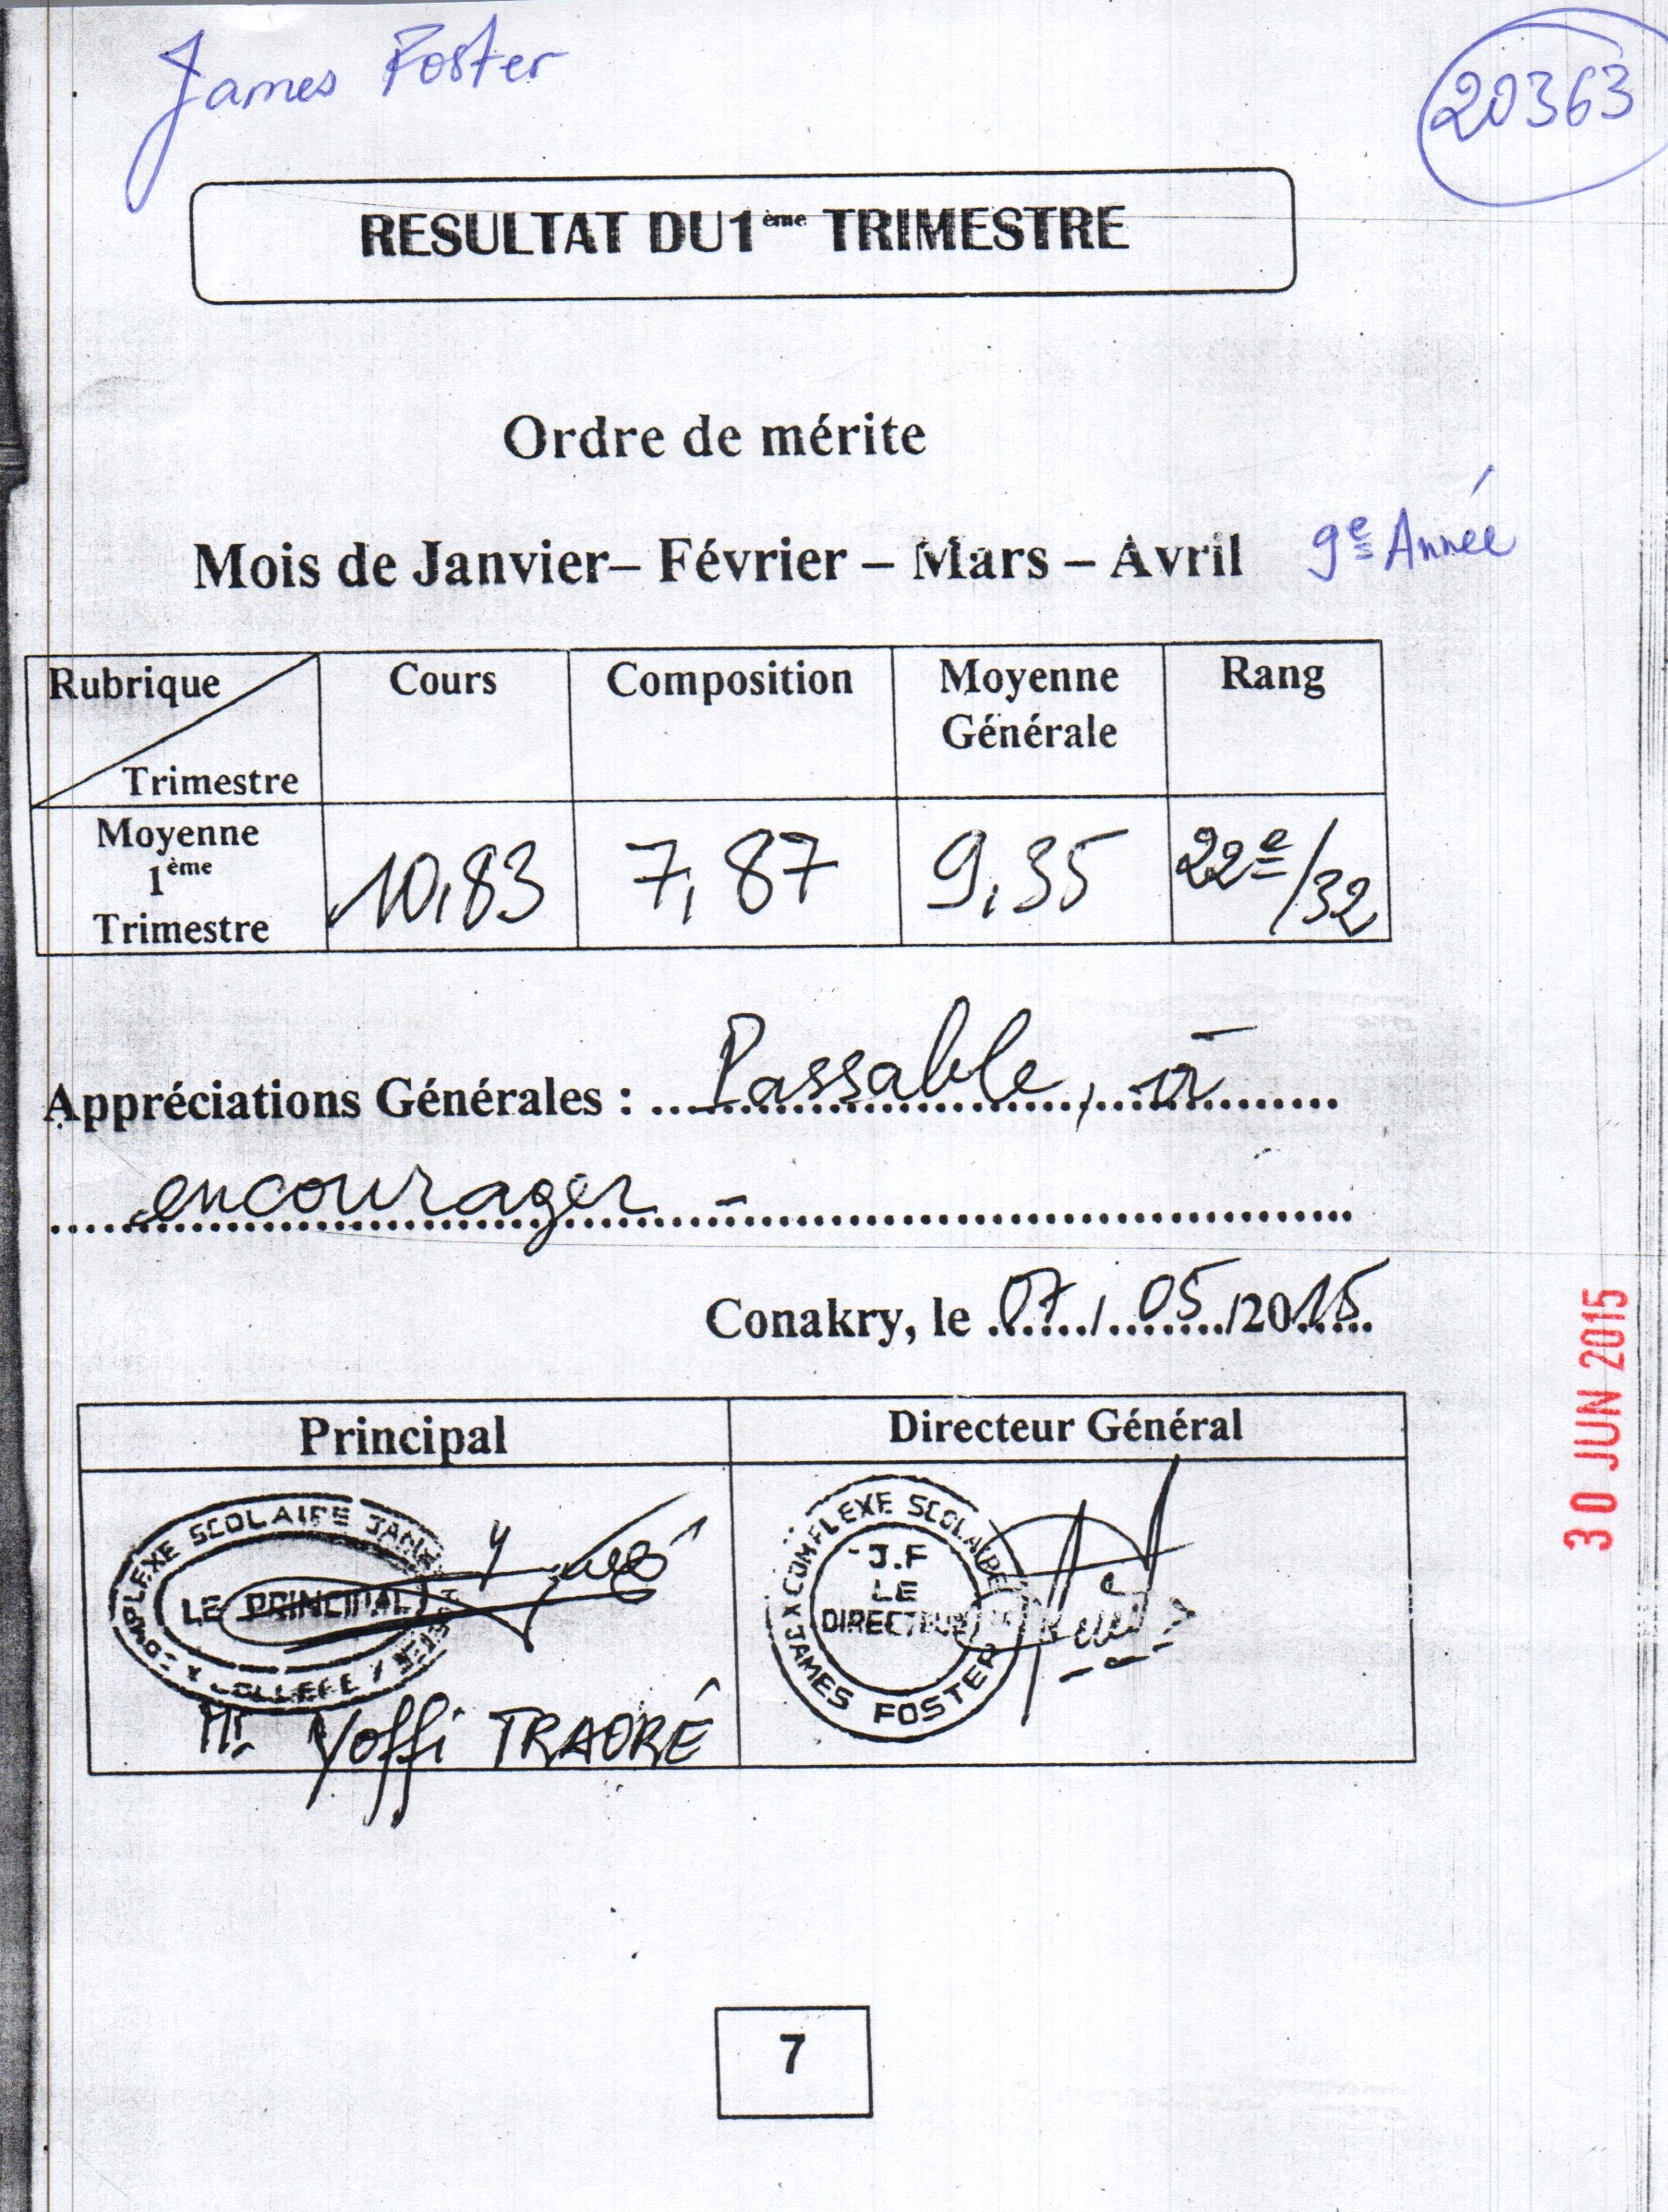 James Foster
20363
RESULTAT DU 1ème TRIMESTRE
Ordre de mérite
Mois de Janvier– Février – Mars – Avril 9e Année
Rubrique Cours Composition Moyenne Rang
Générale
Trimestre
Moyenne
1ème
Trimestre
10,83 7,87 9,35 22e/32
Appréciations Générales : Passable, à
encourager -
Conakry, le 07/05/2015
30 JUN 2015
Principal Directeur Général
COMPLEXE SCOLAIRE
LE PRINCIPAL
COMPLEXE SCOLAIRE
J.F
LE
DIRECTEUR
JAMES FOSTER
Mr Yoffi TRAORÉ
7